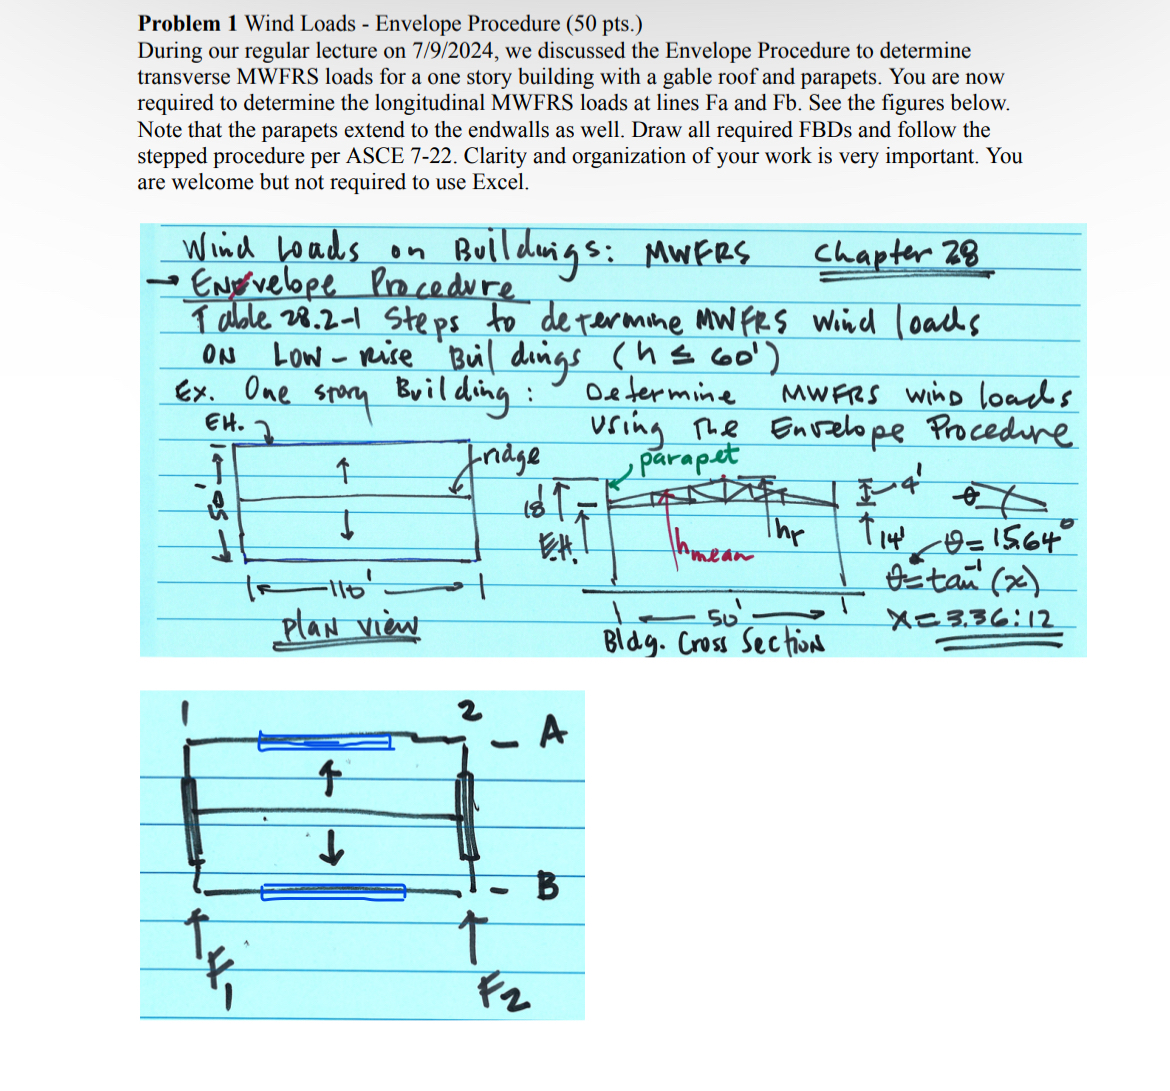 Problem 1 Wind Loads - Envelope Procedure (50 pts.)
During our regular lecture on 7/9/2024, we discussed the Envelope Procedure to determine
transverse MWFRS loads for a one story building with a gable roof and parapets. You are now
required to determine the longitudinal MWFRS loads at lines Fa and Fb. See the figures below.
Note that the parapets extend to the endwalls as well. Draw all required FBDs and follow the
stepped procedure per ASCE 7-22. Clarity and organization of your work is very important. You
are welcome but not required to use Excel.
Wind Loads on Buildings: MWFRS Chapter 28
→ Envelope Procedure
Table 28.2-1 Steps to determine MWFRS wind loads
ON Low-rise Buildings (h ≤ 60')
Ex. One story Building: Determine MWFRS wind loads
using The Envelope Procedure
EH.
ridge
parapet
18'
4'
θ
E.H.
hmean
hr
14'
θ = 15.64°
θ = tan⁻¹(x)
x = 3.36:12
50'
110'
50'
PLAN view
Bldg. Cross Section
1
2
A
B
F1
F2